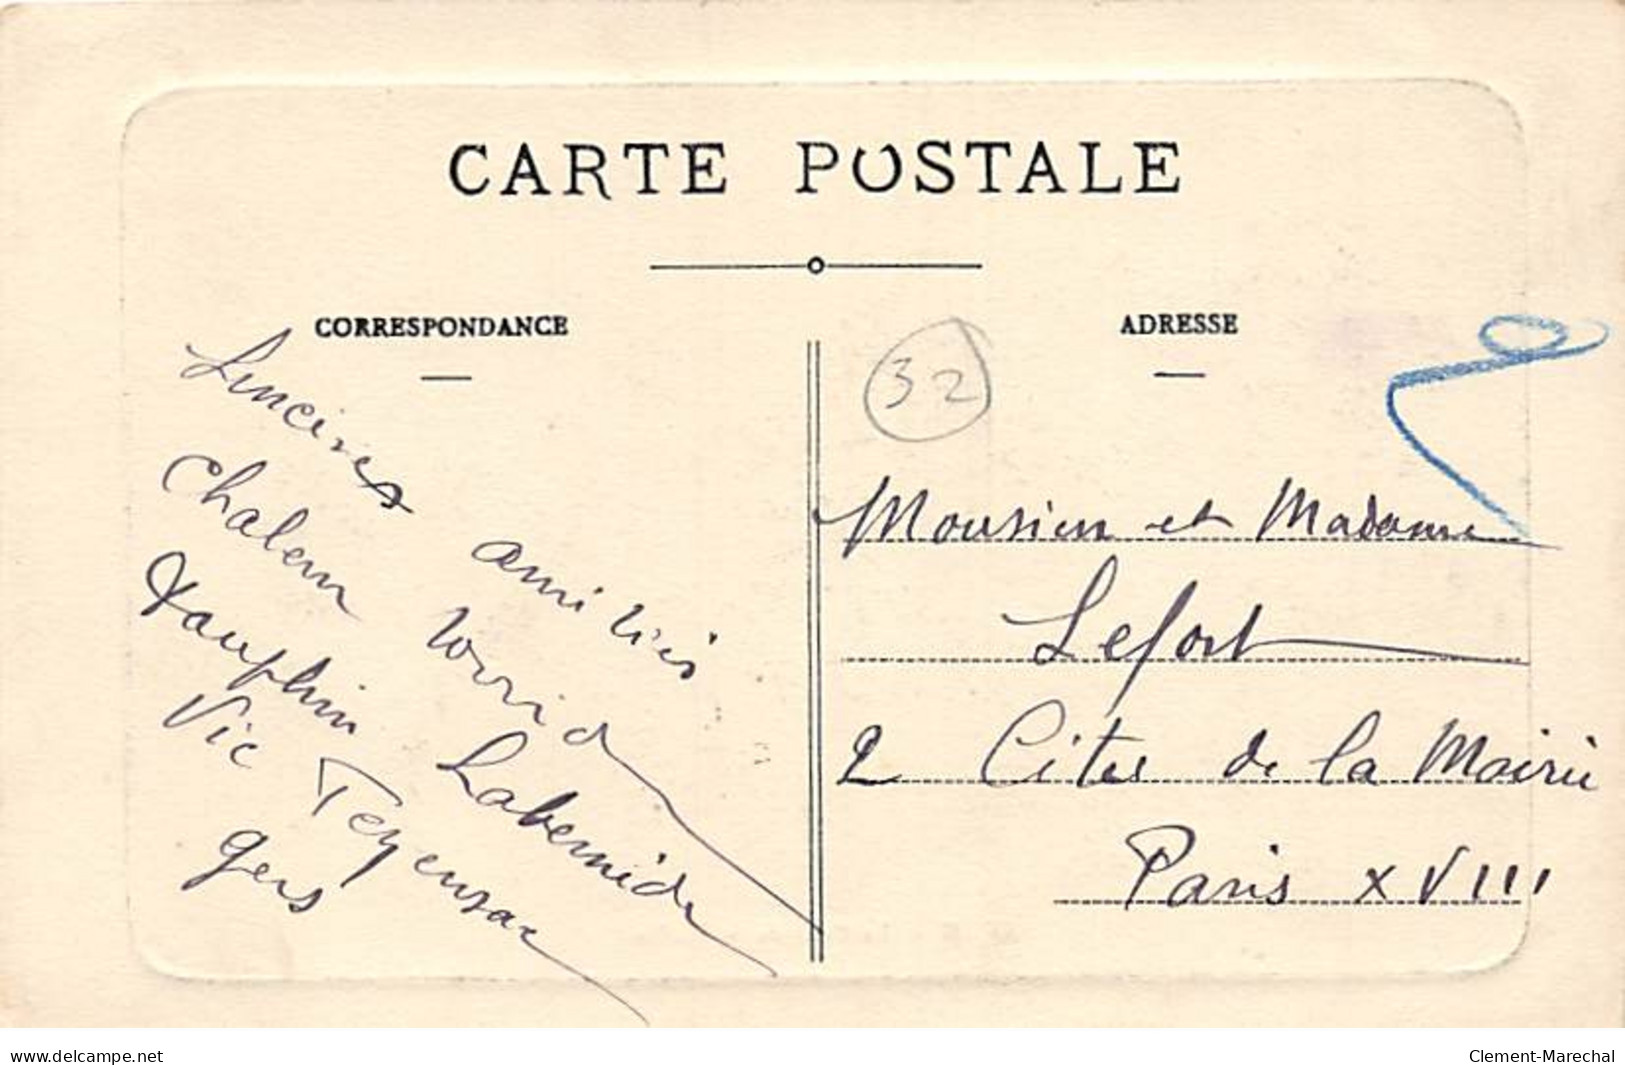 CARTE POSTALE
CORRESPONDANCE
ADRESSE
32
Sincères amitiés
Chaleur torride
Dauphin Labernide
Vic Fezensac
Gers
Monsieur et Madame
Lefort
2 Cités de la Mairie
Paris XVIII
www.delcampe.net
Clement-Marechal